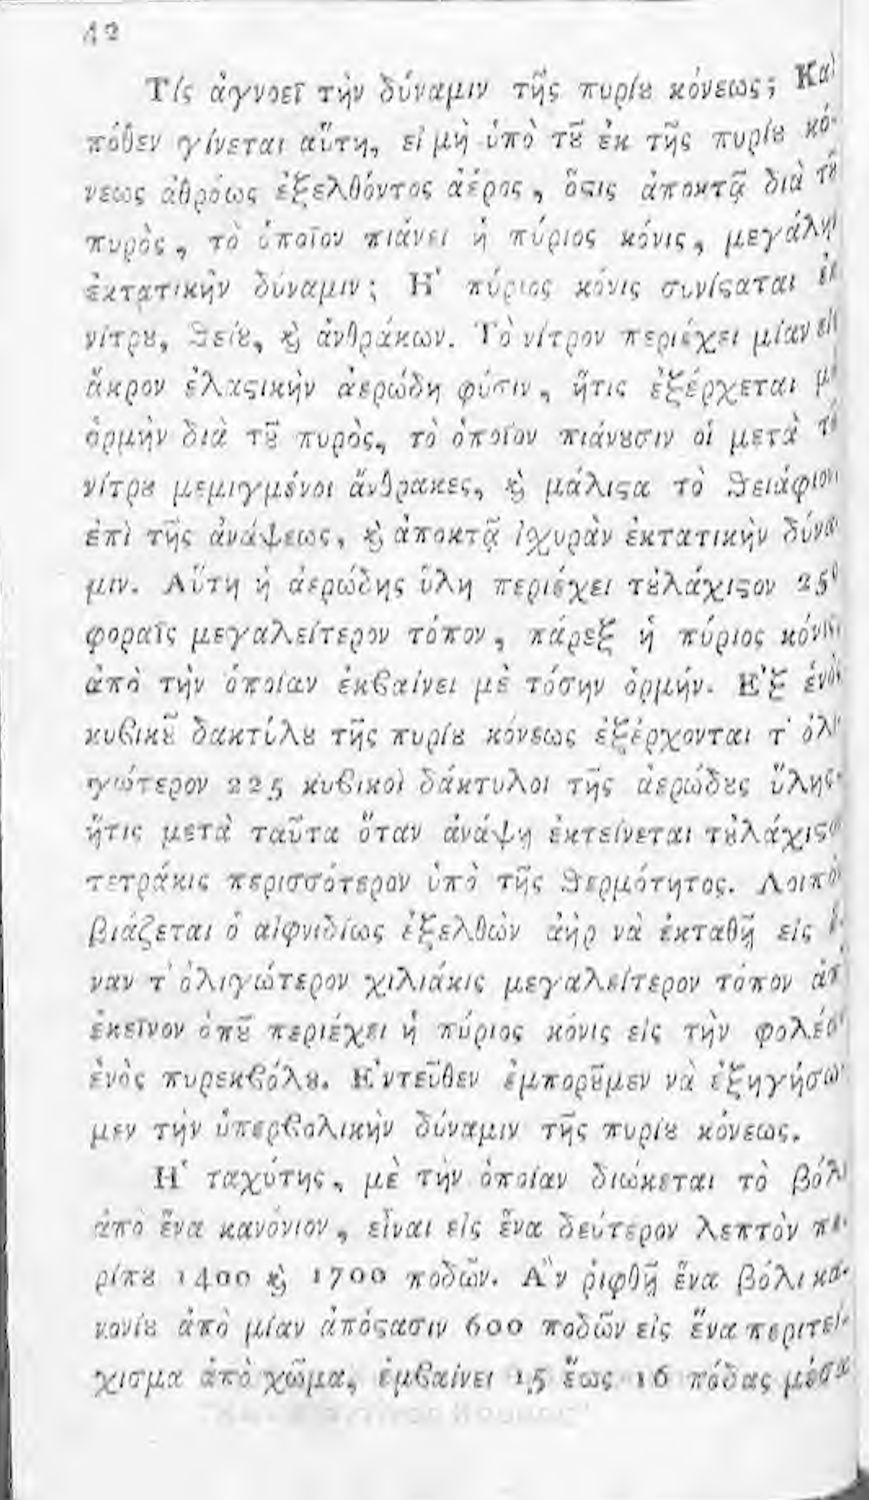 42
Τίς ἀγνοεῖ τὴν δύναμιν τῆς πυρίȣ κόνεως; Καὶ
πόθεν γίνεται αὕτη, εἰ μὴ ὑπὸ τȣ͂ ἐκ τῆς πυρίȣ κό-
νεως ἀθρόως ἐξελθόντος ἀέρος, ὅϛις ἀποκτᾷ διὰ τȣ͂
πυρὸς, τὸ ὁποῖον πιάνει ἡ πύριος κόνις, μεγάλην
ἐκτατικὴν δύναμιν; Ἡ πύριος κόνις συνίϛαται ἐκ
νίτρȣ, ϑείȣ, ϗ ἀνθράκων. Τὸ νίτρον περιέχει μίαν εἰς
ἄκρον ἐλαϛικὴν ἀερώδη φύσιν, ἥτις ἐξέρχεται μὲ
ὁρμὴν διὰ τȣ͂ πυρὸς, τὸ ὁποῖον πιάνȣσιν οἱ μετὰ τȣ͂
νίτρȣ μεμιγμένοι ἄνϑρακες, ϗ μάλιϛα τὸ ϑειάφιον
ἐπὶ τῆς ἀνάψεως, ϗ ἀποκτᾷ ἰχυρὰν ἐκτατικὴν δύνα-
μιν. Αὕτη ἡ ἀερώδης ὕλη περιέχει τȣλάχιϛον 250
φοραῖς μεγαλείτερον τόπον, πάρεξ ἡ πύριος κόνις
ἀπὸ τὴν ὁποίαν ἐκβαίνει μὲ τόσην ὁρμήν. Ἐξ ἑνὸς
κυβικȣ͂ δακτύλȣ τῆς πυρίȣ κόνεως ἐξέρχονται τ' ὀλι-
γώτερον 225 κυβικοὶ δάκτυλοι τῆς ἀερώδȣς ὕλης·
ἥτις μετὰ ταῦτα ὅταν ἀνάψῃ ἐκτείνεται τȣλάχιϛον
τετράκις περισσότερον ὑπὸ τῆς ϑερμότητος. Λοιπὸν
βιάζεται ὁ αἰφνιδίως ἐξελθὼν ἀὴρ νὰ ἐκταθῇ εἰς ἕ-
ναν τ' ὀλιγώτερον χιλιάκις μεγαλείτερον τόπον ἀπ'
ἐκεῖνον ὁπȣ͂ περιέχει ἡ πύριος κόνις εἰς τὴν φολέαν
ἑνὸς πυρεκβόλȣ. Ἐντεῦθεν ἐμπορȣ͂μεν νὰ ἐξηγήσω-
μεν τὴν ὑπερβολικὴν δύναμιν τῆς πυρίȣ κόνεως.
Ἡ ταχύτης, μὲ τὴν ὁποίαν διώκεται τὸ βόλι
ἀπὸ ἕνα κανόνιον, εἶναι εἰς ἕνα δεύτερον λεπτὸν πε-
ρίπȣ 1400 ϗ 1700 ποδῶν. Ἂν ῥιφθῇ ἕνα βόλι κα-
νονίȣ ἀπὸ μίαν ἀπόϛασιν 600 ποδῶν εἰς ἕνα περιτεί-
χισμα ἀπὸ χῶμα, ἐμβαίνει 15 ἕως 16 πόδας μέσα